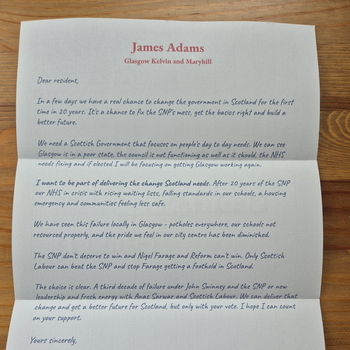 James Adams
Glasgow Kelvin and Maryhill
Dear resident,
In a few days we have a real chance to change the government in Scotland for the first
time in 20 years. It's a chance to fix the SNP's mess, get the basics right and build a
better future.
We need a Scottish Government that focuses on people's day to day needs. We can see
Glasgow is in a poor state, the council is not functioning as well as it should, the NHS
needs fixing and if elected I will be focusing on getting Glasgow working again.
I want to be part of delivering the change Scotland needs. After 20 years of the SNP
our NHS in crisis with rising waiting lists, falling standards in our schools, a housing
emergency and communities feeling less safe.
We have seen this failure locally in Glasgow - potholes everywhere, our schools not
resourced properly, and the pride we feel in our city centre has been diminished.
The SNP don't deserve to win and Nigel Farage and Reform can't win. Only Scottish
Labour can beat the SNP and stop Farage getting a foothold in Scotland.
The choice is clear. A third decade of failure under John Swinney and the SNP or new
leadership and fresh energy with Anas Sarwar and Scottish Labour. We can deliver that
change and get a better future for Scotland, but only with your vote. I hope I can count
on your support.
Yours sincerely,